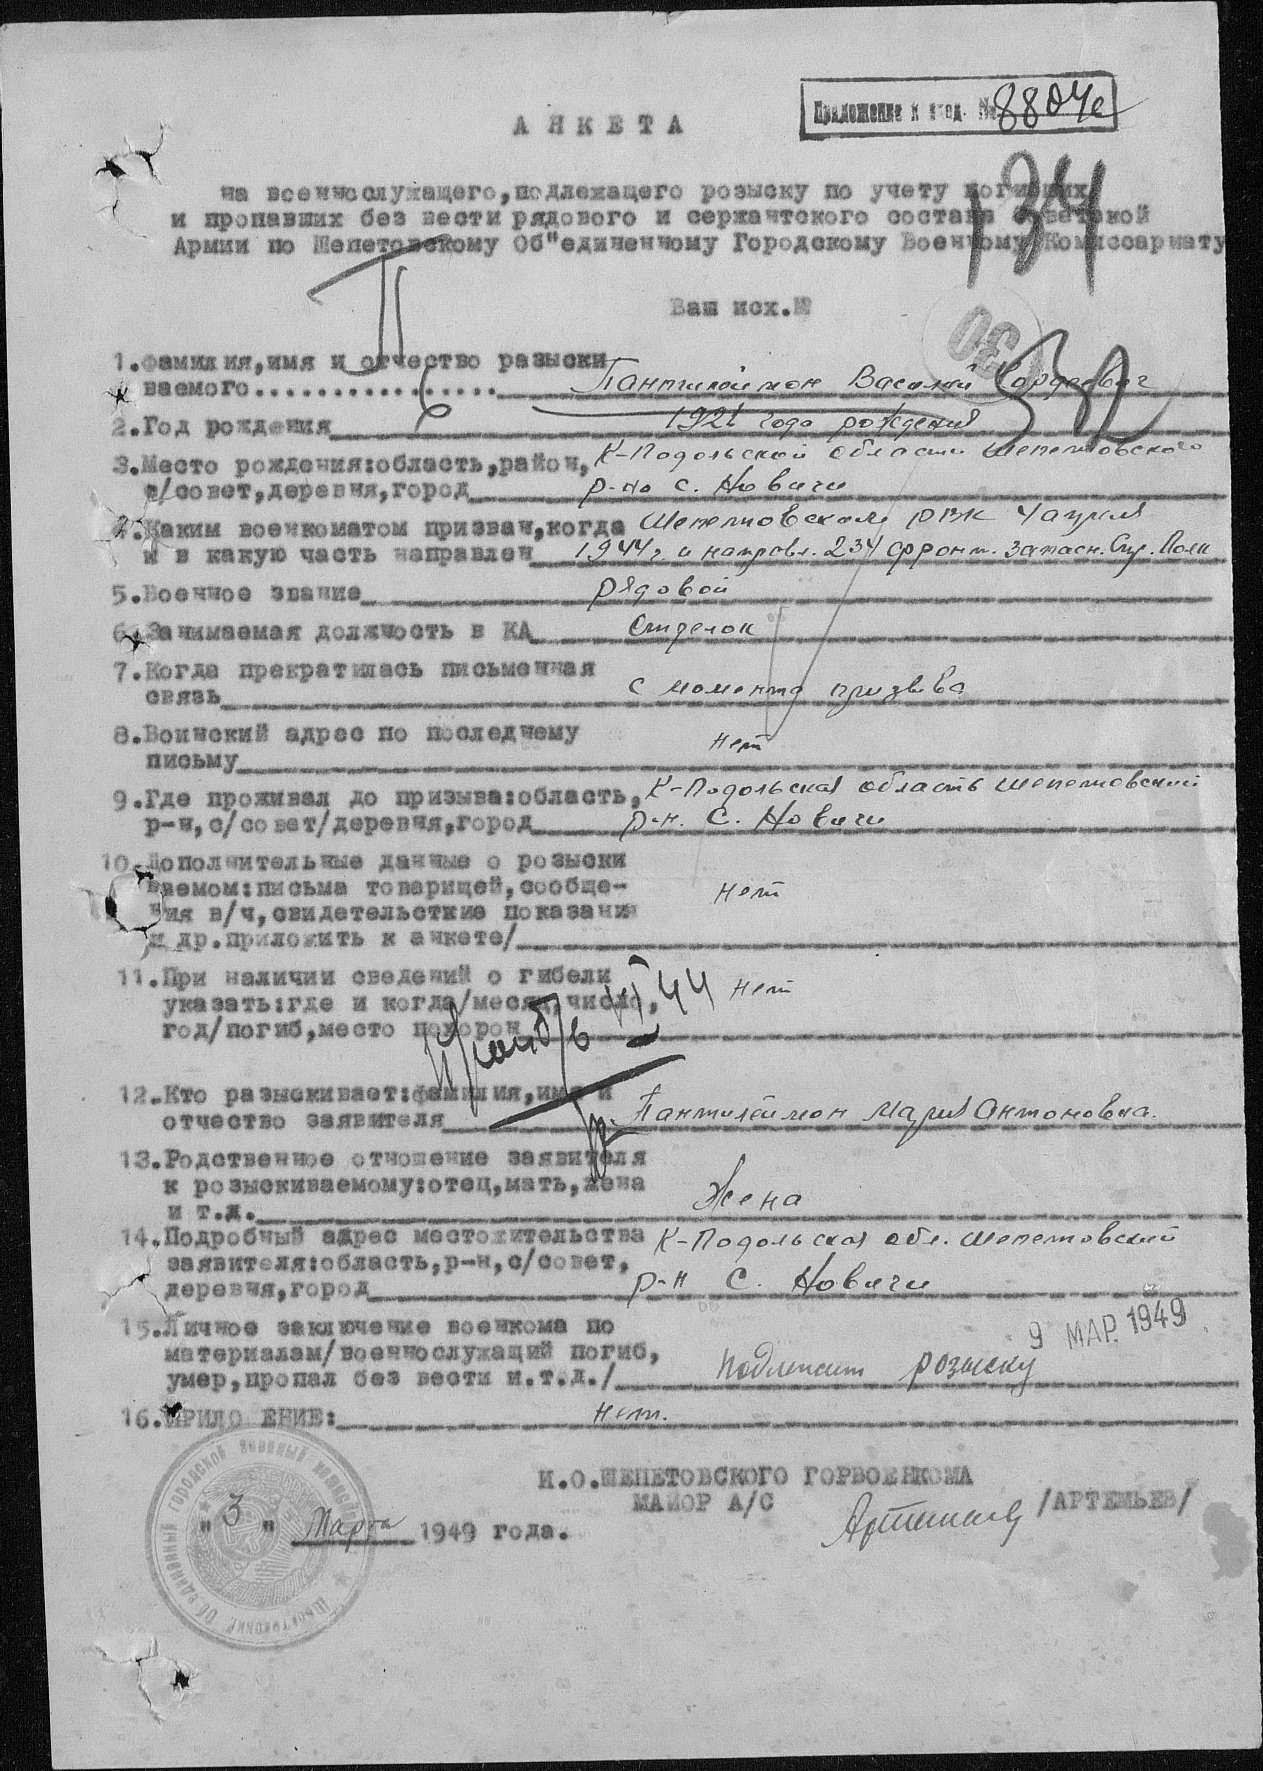 Приложение к вход. № 8804с
АНКЕТА
134
на военнослужащего,подлежащего розыску по учету погибших
и пропавших без вести рядового и сержантского состава Советской
Армии по Шепетовскому Об"единенному Городскому Военному Комиссариату
Ваш исх.№
1.Фамилия,имя и отчество разыски
ваемого................ Пантилеймон Василий Гордеевич
2.Год рождения 1921 года рождения
3.Место рождения:область,район, К-Подольской области Шепетовского
с/совет,деревня,город р-на с. Новичи
4.Каким военкоматом призван,когда Шепетовским РВК 4 апреля
и в какую часть направлен 1944г. и направл. 234 фронт. запасн. Стр. Полк
5.Военное звание рядовой
6.Занимаемая должность в КА стрелок
7.Когда прекратилась письменная
связь с момента призыва
8.Воинский адрес по последнему
письму нет
9.Где проживал до призыва:область, К-Подольская область Шепетовский
р-н,с/совет/деревня,город р-н. с. Новичи
10.Дополнительные данные о розыски
ваемом:письма товарищей,сообще-
ния в/ч,свидетельсткие показания нет
и др.приложить к анкете/
11.При наличии сведений о гибели
указать:где и когда/месяц,число, нет
год/погиб,место похорон
44
12.Кто разыскивает:фамилия,имя и
отчество заявителя Пантилеймон Мария Антоновна.
13.Родственное отношение заявителя
к розыскиваемому:отец,мать,жена
и т.д. Жена
14.Подробный адрес местожительства К-Подольская обл. Шепетовский
заявителя:область,р-н,с/совет,
деревня,город р-н с. Новичи
9 МАР. 1949
15.Личное заключение военкома по
материалам/военнослужащий погиб,
умер,пропал без вести и.т.д./ подлежит розыску
16.ПРИЛОЖЕНИЕ: нет.
И.О.ШЕПЕТОВСКОГО ГОРВОЕНКОМА
МАЙОР А/С Артемьев /АРТЕМЬЕВ/
"3" Марта 1949 года.